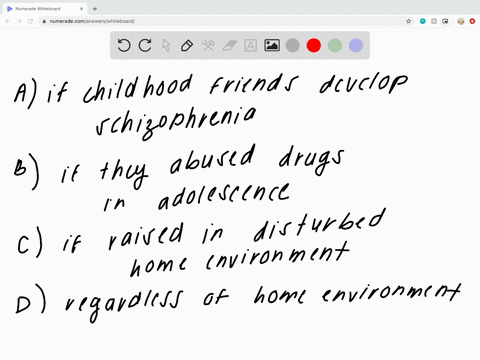 Numerade Whiteboard
numerade.com/answers/whiteboard/
A) if childhood friends develop
schizophrenia
B) if they abused drugs
in adolescence
C) if raised in disturbed
home environment
D) regardless of home environment